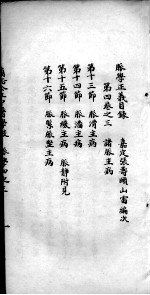 脈學正義目錄　嘉定張壽頤山雷編次
第四卷之三　諸脈主病
第十三節　脈滑主病
第十四節　脈濇主病
第十五節　脈緩主病　脈靜附見
第十六節　脈緊脈堅主病